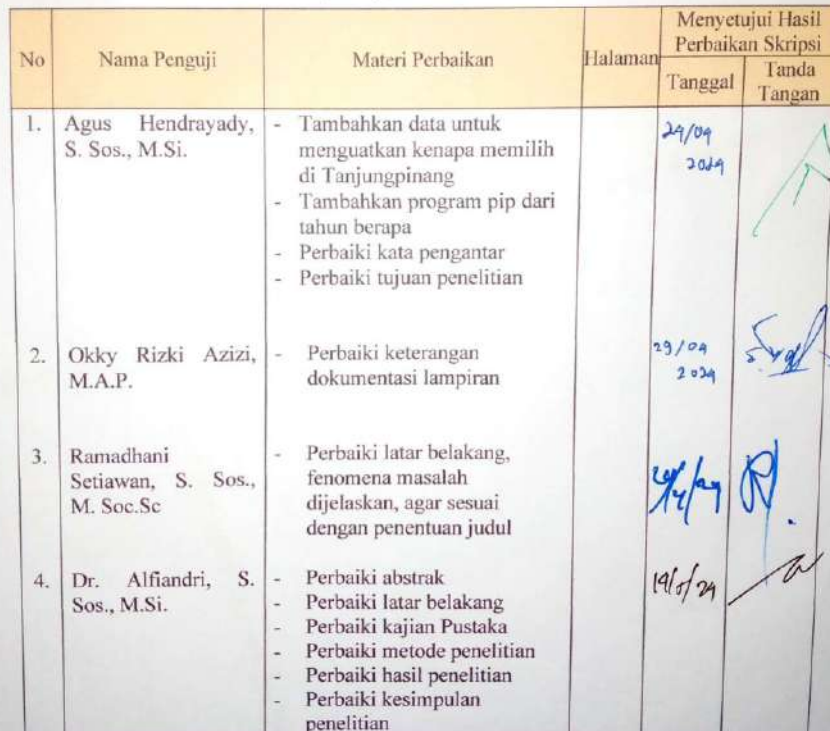 No Nama Penguji Materi Perbaikan Halaman Menyetujui Hasil Perbaikan Skripsi
Tanggal Tanda Tangan
1. Agus Hendrayady, S. Sos., M.Si.
- Tambahkan data untuk
menguatkan kenapa memilih
di Tanjungpinang
- Tambahkan program pip dari
tahun berapa
- Perbaiki kata pengantar
- Perbaiki tujuan penelitian
24/04
2024
2. Okky Rizki Azizi,
M.A.P.
- Perbaiki keterangan
dokumentasi lampiran
29/04
2024
3. Ramadhani
Setiawan, S. Sos.,
M. Soc.Sc
- Perbaiki latar belakang,
fenomena masalah
dijelaskan, agar sesuai
dengan penentuan judul
4. Dr. Alfiandri, S.
Sos., M.Si.
- Perbaiki abstrak
- Perbaiki latar belakang
- Perbaiki kajian Pustaka
- Perbaiki metode penelitian
- Perbaiki hasil penelitian
- Perbaiki kesimpulan
penelitian